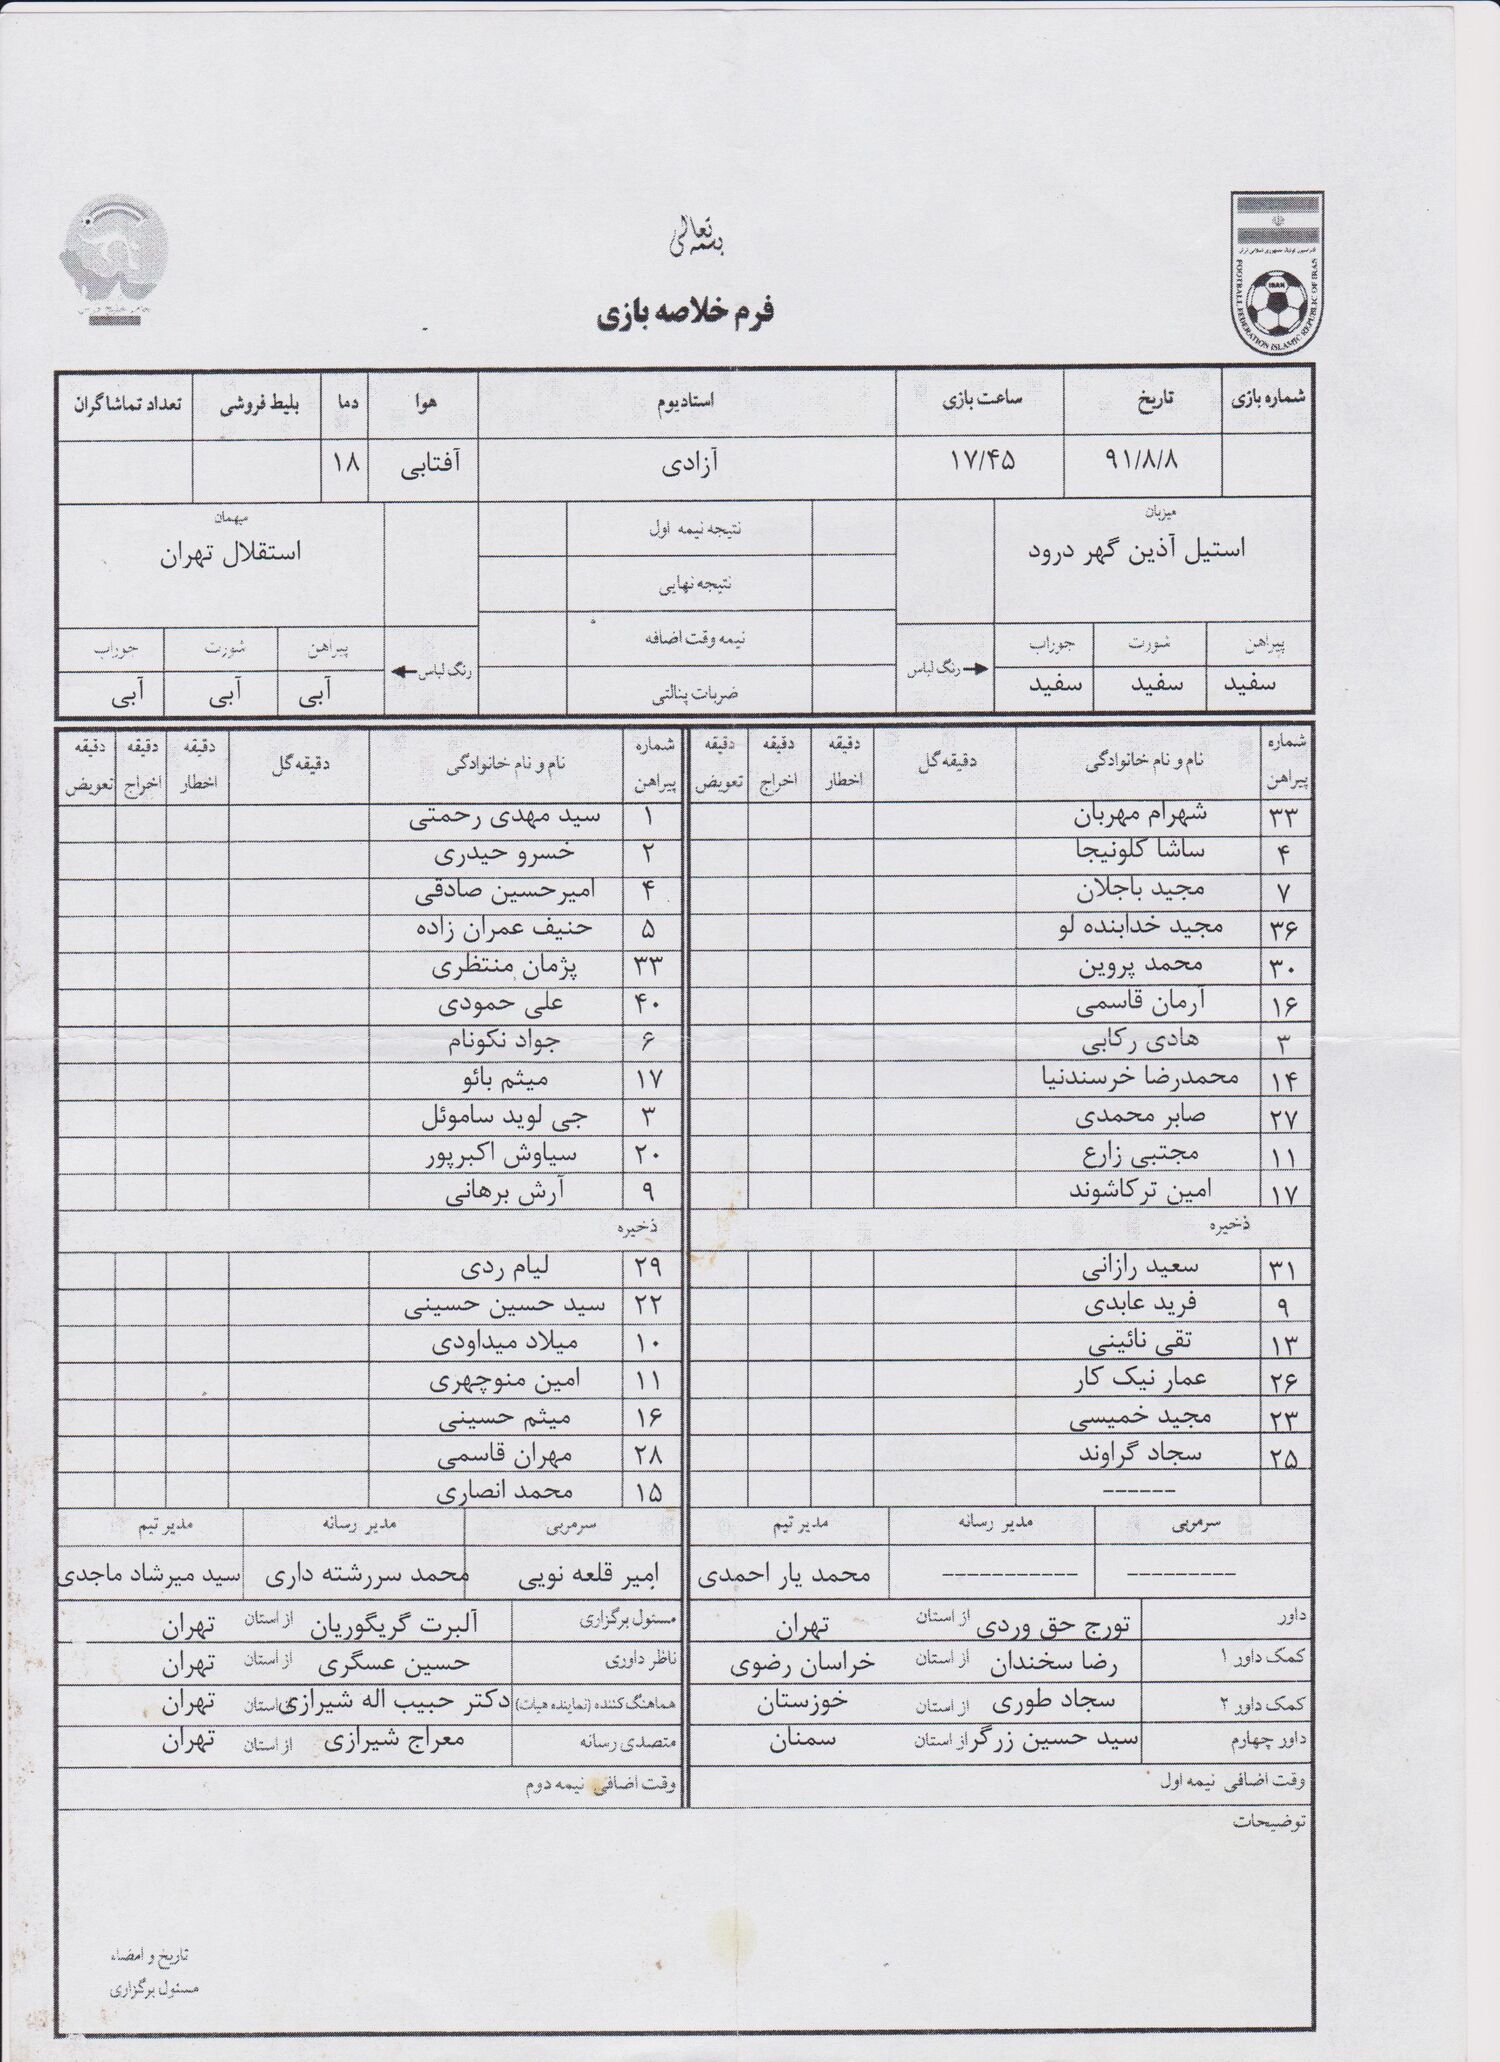 بسمه تعالی
فرم خلاصه بازی
FOOTBALL FEDERATION ISLAMIC REPUBLIC OF IRAN
IRAN
شماره بازی تاریخ ساعت بازی استادیوم هوا دما بلیط فروشی تعداد تماشاگران
۹۱/۸/۸ ۱۷/۴۵ آزادی آفتابی ۱۸
میزبان نتیجه نیمه اول میهمان
استیل آذین گهر درود استقلال تهران
نتیجه نهایی
پیراهن شورت جوراب رنگ لباس نیمه وقت اضافه رنگ لباس پیراهن شورت جوراب
سفید سفید سفید ضربات پنالتی آبی آبی آبی
شماره پیراهن نام و نام خانوادگی دقیقه گل دقیقه اخطار دقیقه اخراج دقیقه تعویض شماره پیراهن نام و نام خانوادگی دقیقه گل دقیقه اخطار دقیقه اخراج دقیقه تعویض
۳۳ شهرام مهربان ۱ سید مهدی رحمتی
۴ ساشا کلونیجا ۲ خسرو حیدری
۷ مجید باجلان ۴ امیرحسین صادقی
۳۶ مجید خدابنده لو ۵ حنیف عمران زاده
۳۰ محمد پروین ۳۳ پژمان منتظری
۱۶ آرمان قاسمی ۴۰ علی حمودی
۳ هادی رکابی ۶ جواد نکونام
۱۴ محمدرضا خرسندنیا ۱۷ میثم بائو
۲۷ صابر محمدی ۳ جی لوید ساموئل
۱۱ مجتبی زارع ۲۰ سیاوش اکبرپور
۱۷ امین ترکاشوند ۹ آرش برهانی
ذخیره ذخیره
۳۱ سعید رازانی ۲۹ لیام ردی
۹ فرید عابدی ۲۲ سید حسین حسینی
۱۳ تقی نائینی ۱۰ میلاد میداودی
۲۶ عمار نیک کار ۱۱ امین منوچهری
۲۳ مجید خمیسی ۱۶ میثم حسینی
۲۵ سجاد گراوند ۲۸ مهران قاسمی
------ ۱۵ محمد انصاری
سرمربی مدیر رسانه مدیر تیم سرمربی مدیر رسانه مدیر تیم
--------- ----------- محمد یار احمدی امیر قلعه نویی محمد سررشته داری سید میرشاد ماجدی
داور تورج حق وردی از استان تهران مسئول برگزاری آلبرت گریگوریان از استان تهران
کمک داور ۱ رضا سخندان از استان خراسان رضوی ناظر داوری حسین عسگری از استان تهران
کمک داور ۲ سجاد طوری از استان خوزستان هماهنگ کننده (نماینده هیات) دکتر حبیب اله شیرازی از استان تهران
داور چهارم سید حسین زرگر از استان سمنان متصدی رسانه معراج شیرازی از استان تهران
وقت اضافی نیمه اول وقت اضافی نیمه دوم
توضیحات
تاریخ و امضاء
مسئول برگزاری